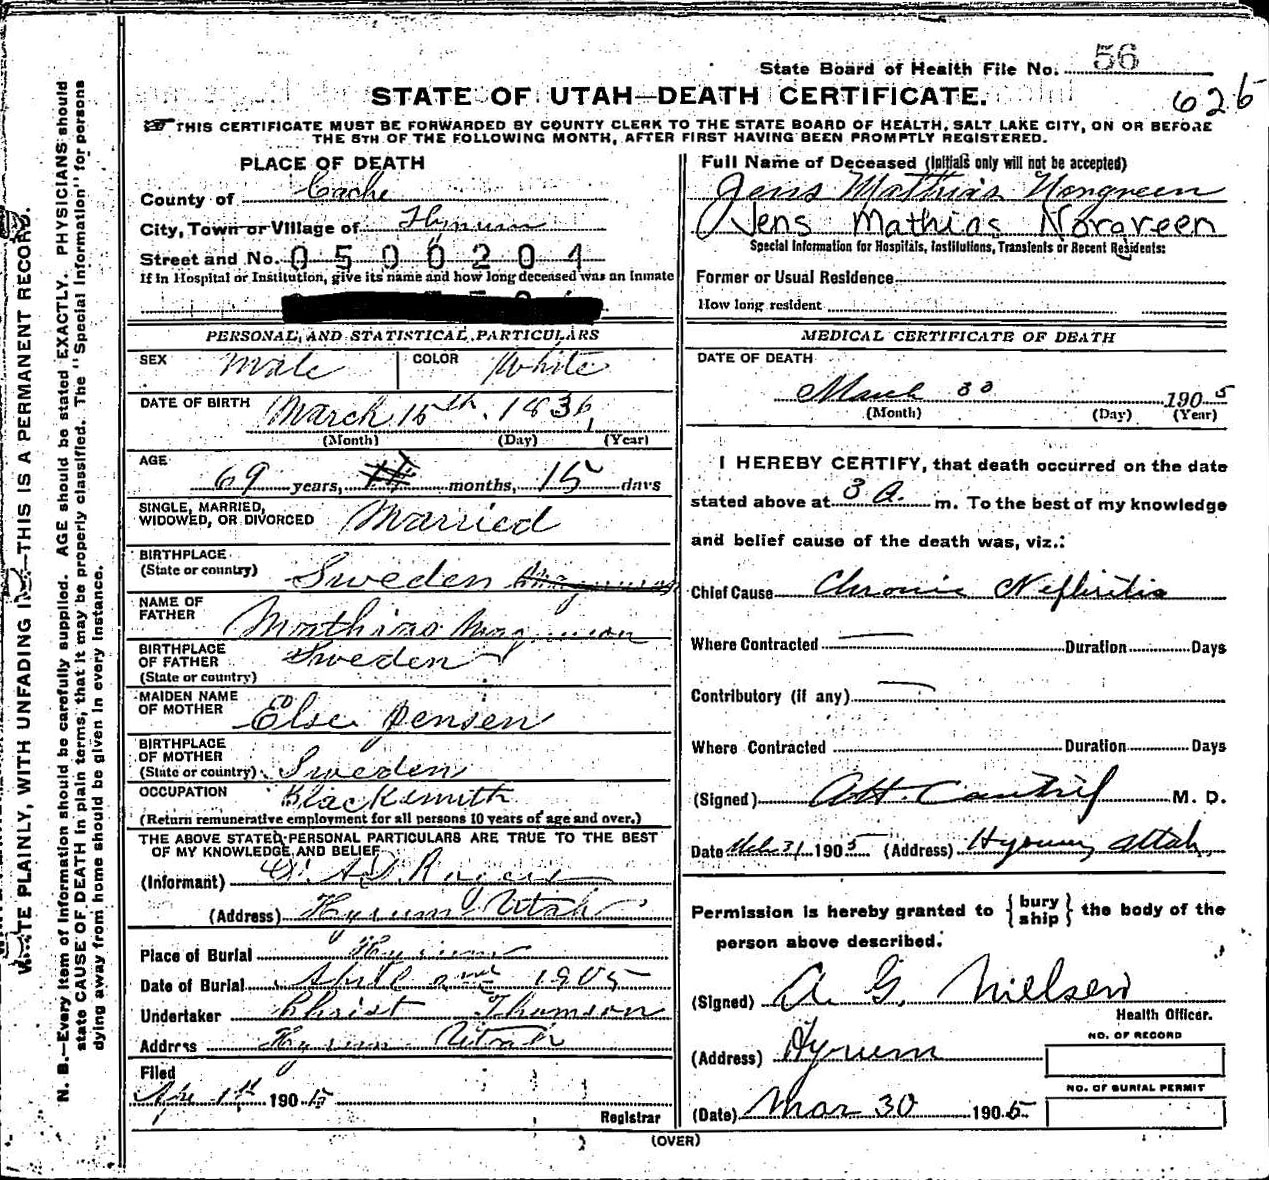 State Board of Health File No. 56
STATE OF UTAH—DEATH CERTIFICATE.
626
THIS CERTIFICATE MUST BE FORWARDED BY COUNTY CLERK TO THE STATE BOARD OF HEALTH, SALT LAKE CITY, ON OR BEFORE
THE 5TH OF THE FOLLOWING MONTH, AFTER FIRST HAVING BEEN PROMPTLY REGISTERED.
PLACE OF DEATH
County of Cache
City, Town or Village of Hyrum
Street and No. 0500204
If in Hospital or Institution, give its name and how long deceased was an inmate
PERSONAL AND STATISTICAL PARTICULARS
SEX Male COLOR White
DATE OF BIRTH March 15th, 1836,
(Month) (Day) (Year)
AGE
69 years, months, 15 days
SINGLE, MARRIED,
WIDOWED, OR DIVORCED Married
BIRTHPLACE
(State or country) Sweden
NAME OF
FATHER Mathias Magnuson
BIRTHPLACE
OF FATHER Sweden
(State or country)
MAIDEN NAME
OF MOTHER Else Jensen
BIRTHPLACE
OF MOTHER
(State or country) Sweden
OCCUPATION Blacksmith
(Return remunerative employment for all persons 10 years of age and over.)
THE ABOVE STATED PERSONAL PARTICULARS ARE TRUE TO THE BEST
OF MY KNOWLEDGE AND BELIEF
(Informant)
(Address) Hyrum Utah
Place of Burial Hyrum
Date of Burial April 2nd 1905
Undertaker Christ Thomson
Address Hyrum Utah
Filed
Apr 1st 1905
Registrar
Full Name of Deceased (Initials only will not be accepted)
Jens Mathias Norgreen
Jens Mathias Norgreen
Special Information for Hospitals, Institutions, Transients or Recent Residents:
Former or Usual Residence
How long resident
MEDICAL CERTIFICATE OF DEATH
DATE OF DEATH
March 30 1905
(Month) (Day) (Year)
I HEREBY CERTIFY, that death occurred on the date
stated above at 3 A. m. To the best of my knowledge
and belief cause of the death was, viz.:
Chief Cause Chronic Nefhritis
Where Contracted Duration Days
Contributory (if any)
Where Contracted Duration Days
(Signed) M. D.
Date Mch 31 1905 (Address) Hyrum, Utah,
Permission is hereby granted to {bury
ship} the body of the
person above described.
(Signed) A. G. Nielsen
Health Officer.
(Address) Hyrum
NO. OF RECORD
NO. OF BURIAL PERMIT
(Date) Mar 30 1905
(OVER)
N. B.—Every item of information should be carefully supplied. AGE should be stated EXACTLY. PHYSICIANS should
state CAUSE OF DEATH in plain terms, that it may be properly classified. The "Special Information" for persons
dying away from home should be given in every instance.
WRITE PLAINLY, WITH UNFADING INK—THIS IS A PERMANENT RECORD.